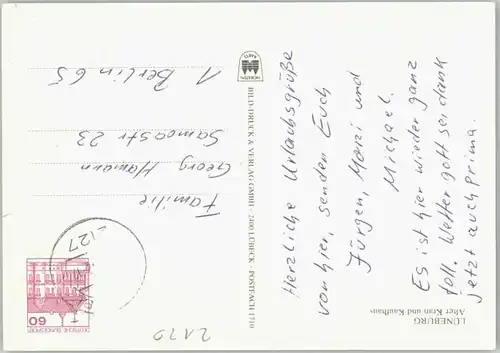 LÜNEBURG
Alter Kran und Kaufhaus
Herzliche Urlaubsgrüße
von hier, senden Euch
Jürgen, Moni und
Michael.
Es ist hier wieder ganz
toll. Wetter gott sei dank
jetzt auch prima.
BILD + DRUCK & VERLAG GMBH · 2400 LÜBECK · POSTFACH 1710
Familie
Georg Hamann
Samoastr 23
1 Berlin 65
60
DEUTSCHE BUNDESPOST
-127
2120